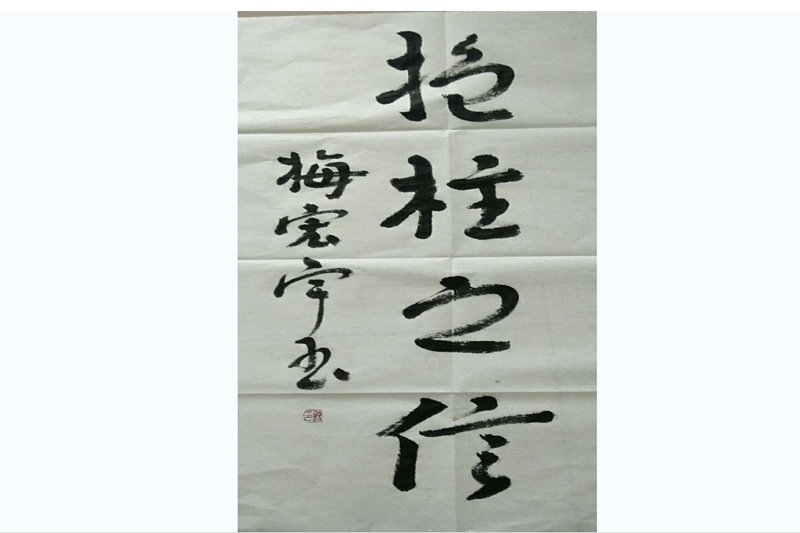 抱柱之信
梅宏宇书